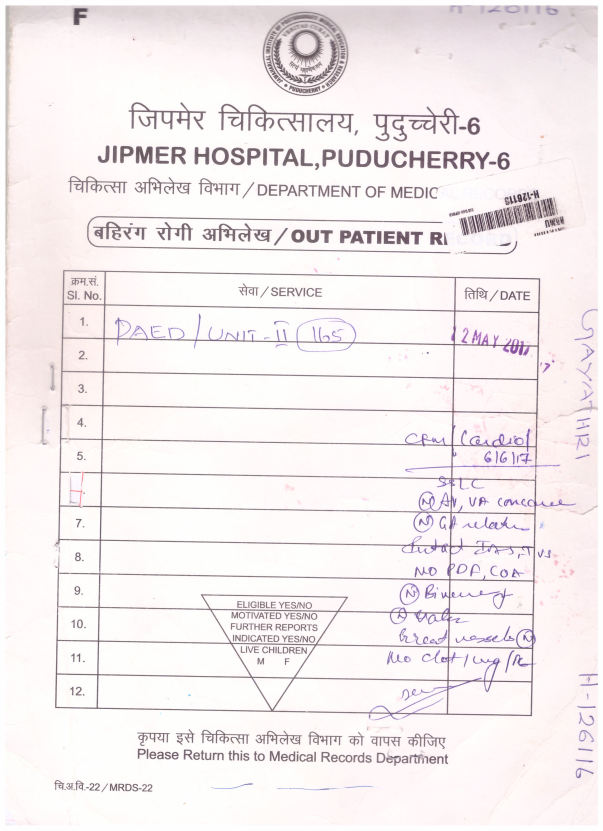 F
H-126116
VERITAS CURAT
PUDUCHERRY
जिपमेर चिकित्सालय, पुदुच्चेरी-6
JIPMER HOSPITAL,PUDUCHERRY-6
चिकित्सा अभिलेख विभाग / DEPARTMENT OF MEDIC
बहिरंग रोगी अभिलेख / OUT PATIENT R
क्रम.सं. सेवा / SERVICE तिथि / DATE
Sl. No.
1. PAED / UNIT-II 165 12 MAY 2017
2.
3.
4. / Cardio /
5. 6/6/17
SSLC
(N) AV, VA
7. (N) GA
8. Intact IAS, IVS
NO PDA, COA
9. (N)
10. (N)
Great vessels (N)
11. No clot / veg / PE
12.
ELIGIBLE YES/NO
MOTIVATED YES/NO
FURTHER REPORTS
INDICATED YES/NO
LIVE CHILDREN
M F
GAYATHRI
H-126116
कृपया इसे चिकित्सा अभिलेख विभाग को वापस कीजिए
Please Return this to Medical Records Department
चि.अ.वि.-22 / MRDS-22